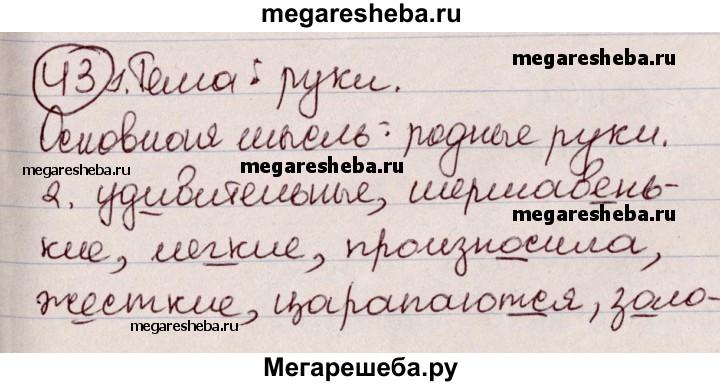 megaresheba.ru
43 1. Тема: руки.
megaresheba.ru
Основная мысль: родные руки.
megaresheba.ru
megaresheba.ru
2. удивительные, шершавень-
megaresheba.ru
кие, легкие, произносила,
жесткие, царапаются, золо-
megaresheba.ru
megaresheba.ru
Мегарешеба.ру